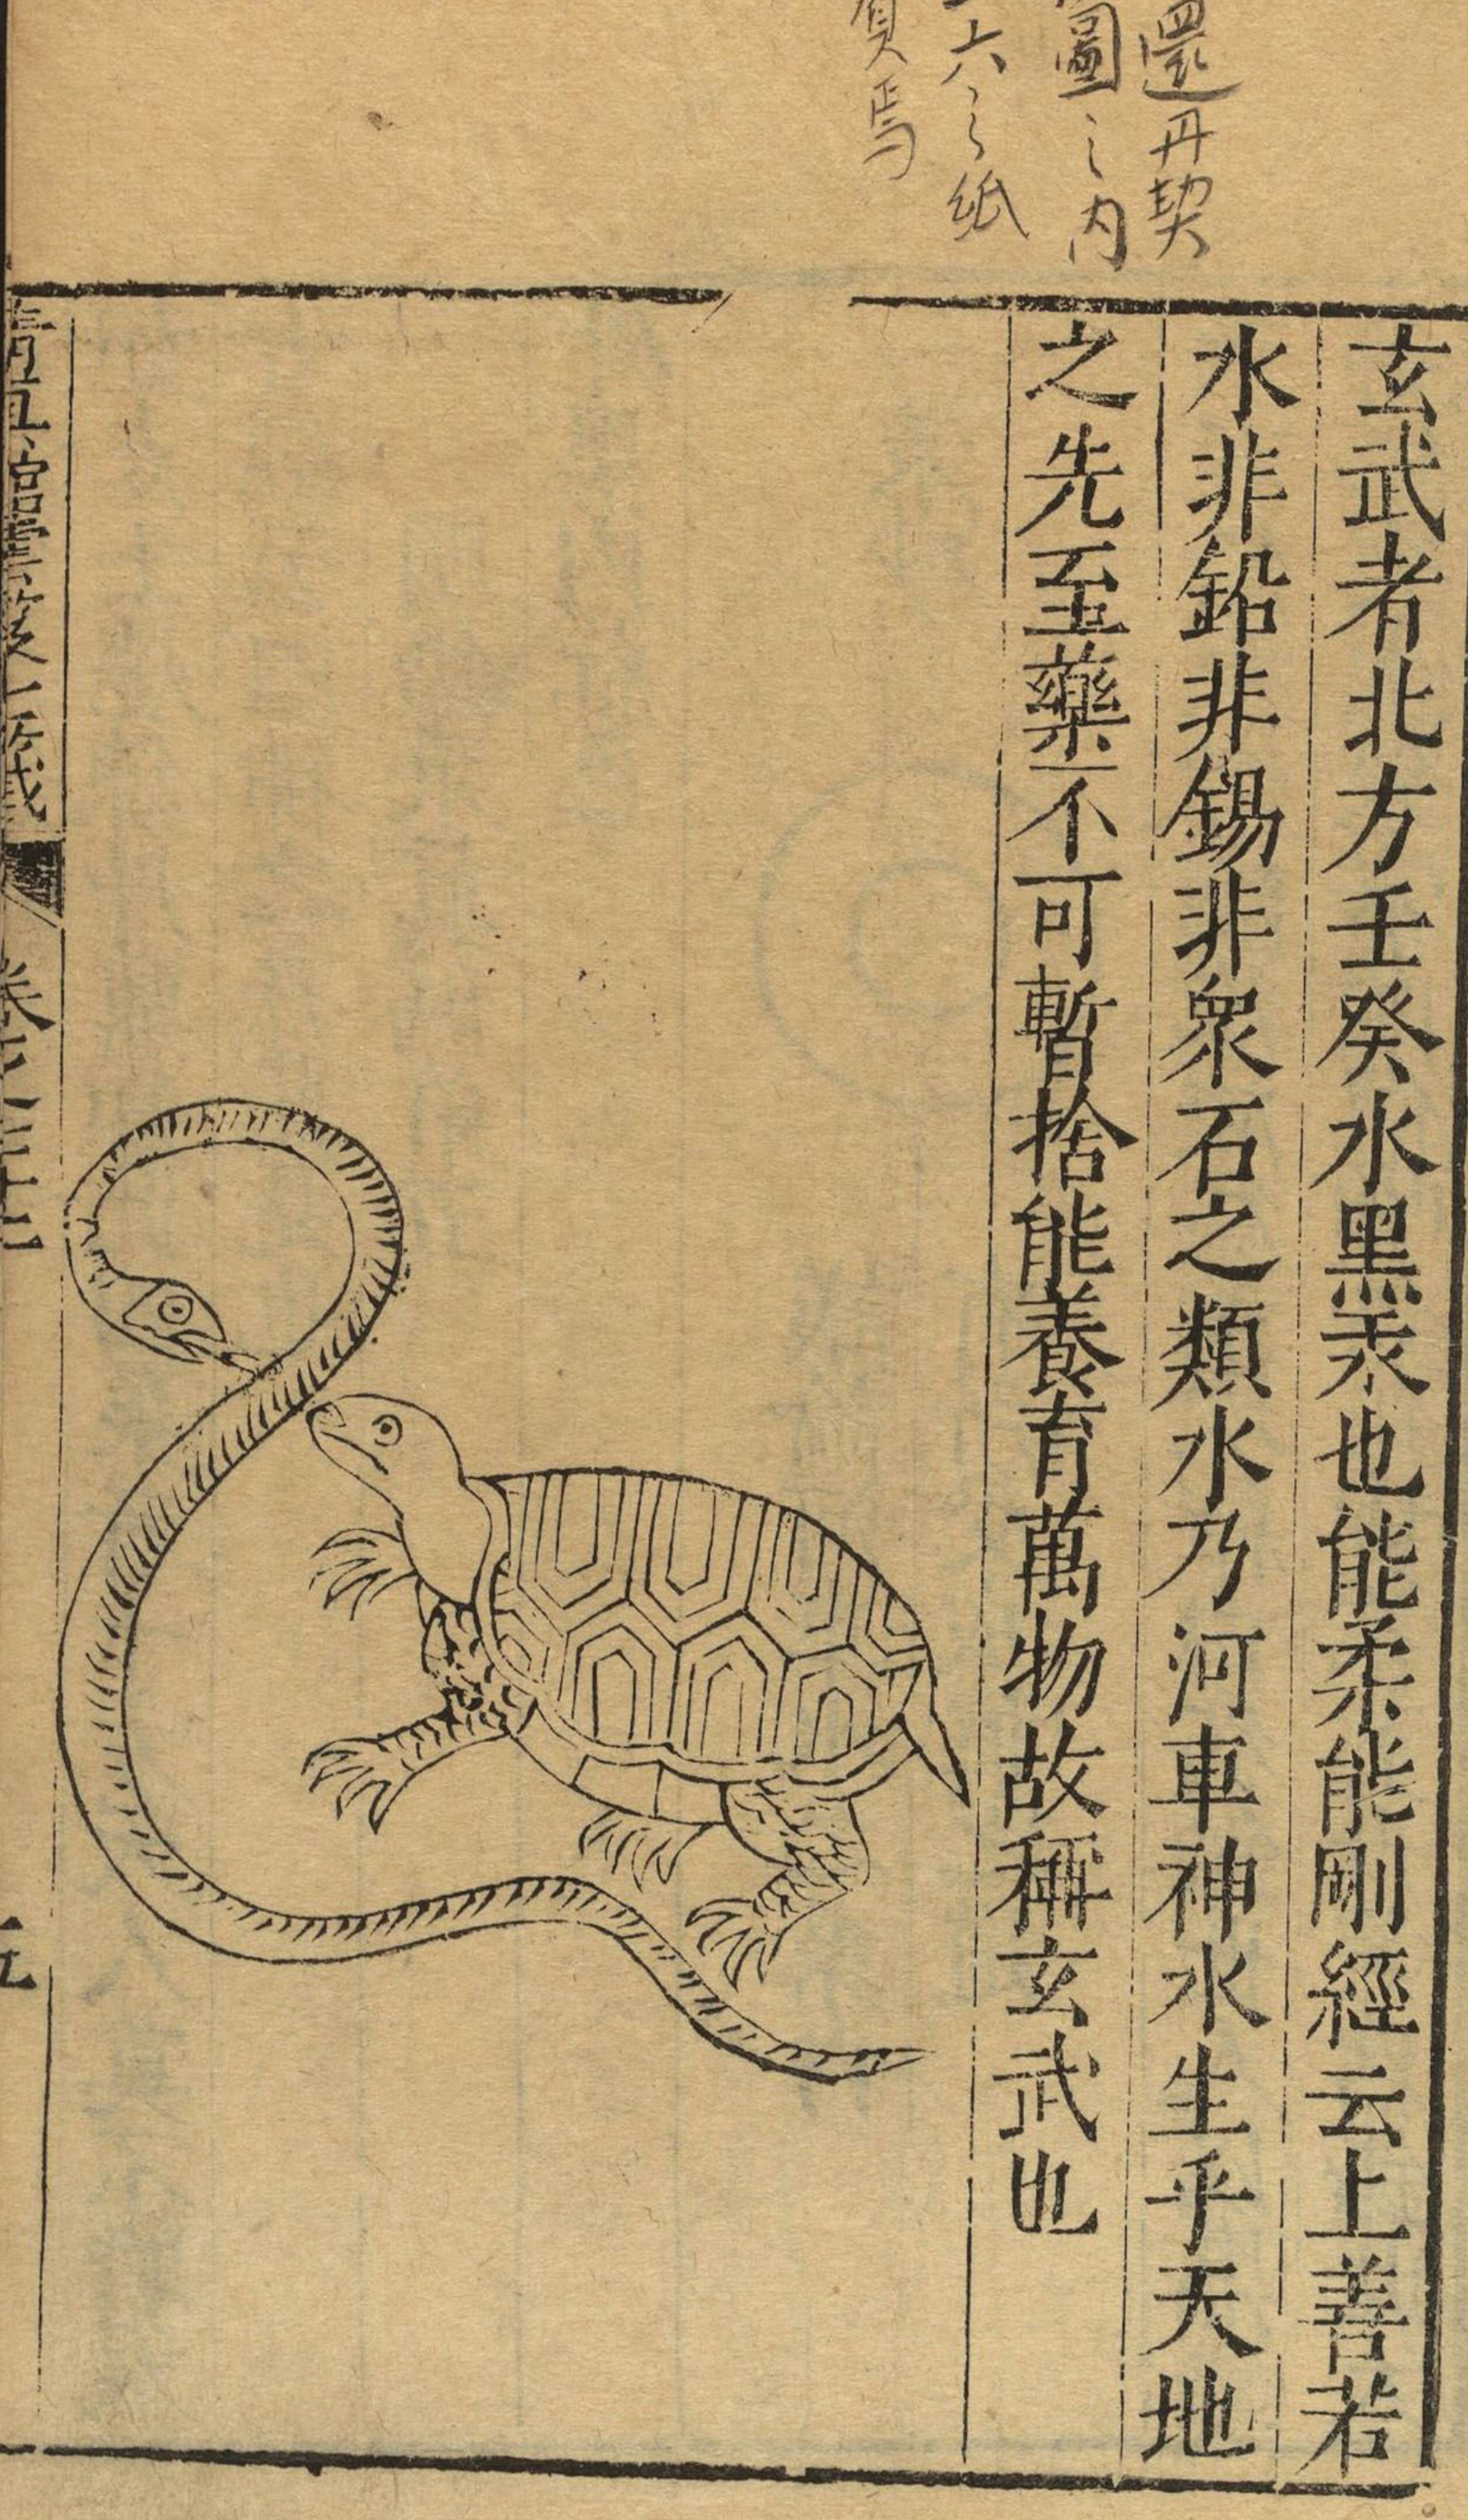 還丹契
圖之内
六之紙
焉
玄武者北方壬癸水黑汞也能柔能剛經云上善若
水非鉛非錫非衆石之類水乃河車神水生乎天地
之先至藥不可暫捨能養育萬物故稱玄武也